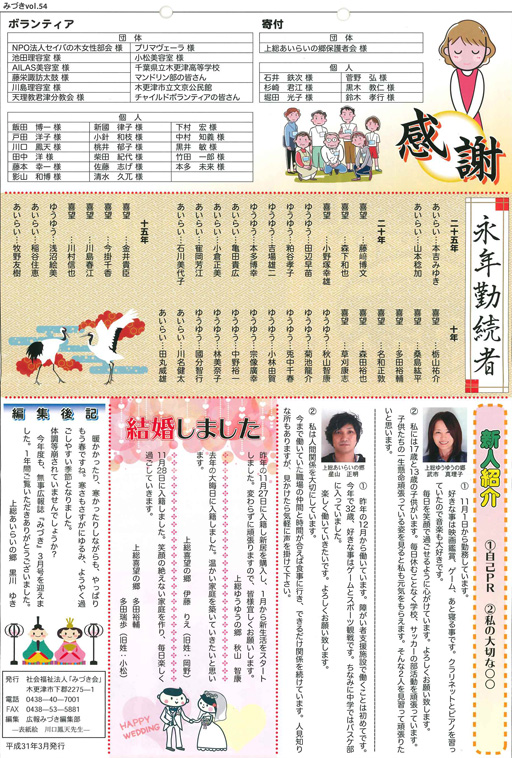 みづきvol.54
ボランティア
団　体
NPO法人セイバの木女性部会 様　プリマヴェーラ 様
池田理容室 様　小松美容室 様
AILAS美容室 様　千葉県立木更津高等学校
藤栄諏訪太鼓 様　マンドリン部の皆さん
川島理容室 様　木更津市立文京公民館
天理教君津分教会 様　チャイルドボランティアの皆さん
個　人
飯田　博一 様　新國　律子 様　下村　宏 様
戸田　洋子 様　小針　和枝 様　中村　知義 様
川口　鳳天 様　桃井　郁子 様　黒井　敏 様
田中　洋 様　柴田　紀代 様　竹田　一郎 様
藤本　幸一 様　佐藤　志げ 様　本多　未来 様
影山　和博 様　清水　久工 様
寄付
団　体
上総あいらいの郷保護者会 様
個　人
石井　鉄次 様　菅野　弘 様
杉崎　君江 様　黒木　教仁 様
堀田　光子 様　鈴木　孝行 様
感謝
永年勤続者
二十五年
あいらい…本吉みゆき
あいらい…山本稔加
二十年
喜望…藤﨑博文
喜望…森下和也
喜望…小野塚幸雄
ゆうゆう…田辺早苗
ゆうゆう…粕谷孝子
ゆうゆう…吉場雄二
ゆうゆう…本多博幸
あいらい…亀田貴広
あいらい…小倉正美
あいらい…崔岡芳江
あいらい…石川美代子
十五年
喜望…金井貴臣
喜望…今掛千香
喜望…川島春江
喜望…川村信也
ゆうゆう…浅沼絵美
あいらい…稲谷住恵
あいらい…牧野友樹
十年
喜望…栃山祐介
喜望…桑島紘平
喜望…多田裕輔
喜望…名和正敦
喜望…森田裕也
喜望…草刈康志
ゆうゆう…秋山智康
ゆうゆう…菊池龍介
ゆうゆう…兎中千春
ゆうゆう…小林由賀
ゆうゆう…宗像廣幸
ゆうゆう…中野裕一
ゆうゆう…林美奈子
ゆうゆう…國分智行
あいらい…川名健太
あいらい…田丸威雄
新人紹介
①自己PR　②私の大切な○○
上総ゆうゆうの郷
武市　真理子
① 11月1日から勤務しています。
好きな事は映画鑑賞、ゲーム、あと寝る事です。クラリネットとピアノを習っていたので音楽も大好きです。
毎日を笑顔で過ごせるように心がけています。よろしくお願い致します。
② 私には17歳と13歳の子供がいます。毎日休むことなく学校、サッカーの部活動を頑張っています。
子供たちの一生懸命頑張っている姿を見ると私も元気をもらえます。そんな2人を見習って頑張りたいと思います。
上総あいらいの郷
星山　正明
① 昨年の12月から働いています。障がい者支援施設で働くことは初めてです。
今年で32歳、好きな事はゲームとスポーツ観戦です。ちなみに中学ではバスケ部に入っていました。
楽しく働いていきたいです。よろしくお願い致します。
② 私は人間関係を大切にしています。
今まで働いていた職場の仲間と時間が合えば食事に行き、できるだけ関係を続けています。人見知りな所もありますが、見かけたら気軽に声を掛けて下さい。
結婚しました
昨年の11月27日に入籍し新居を購入し、1月から新生活をスタートしました。変わらずに頑張りますので、皆様宜しくお願いします。
上総ゆうゆうの郷　秋山　智康
去年の大晦日に入籍しました。温かい家庭を築いていきたいと思います。
上総喜望の郷　伊藤　りえ（旧姓：岡野）
11月28日に入籍しました。笑顔の絶えない家庭を作り、毎日楽しく過ごしていきます。
上総喜望の郷　多田裕輔
多田瑞歩（旧姓：小松）
HAPPY WEDDING
編集後記
暖かかったり、寒かったりしながらも、やっぱりもう春ですね。寒さもさすがにゆるみ、ようやく過ごしやすい季節となりました。
体調等崩されていませんでしょうか？
今年度も、無事広報誌「みづき」3月号を迎えました。1年間ご覧いただきありがとうございました。
上総あいらいの郷　黒川　ゆき
発行　社会福祉法人「みづき会」
木更津市下郡2275―1
電話　0438―40―7001
FAX　0438―53―5881
編集　広報みづき編集部
―表紙絵　川口鳳天先生―
平成31年3月発行